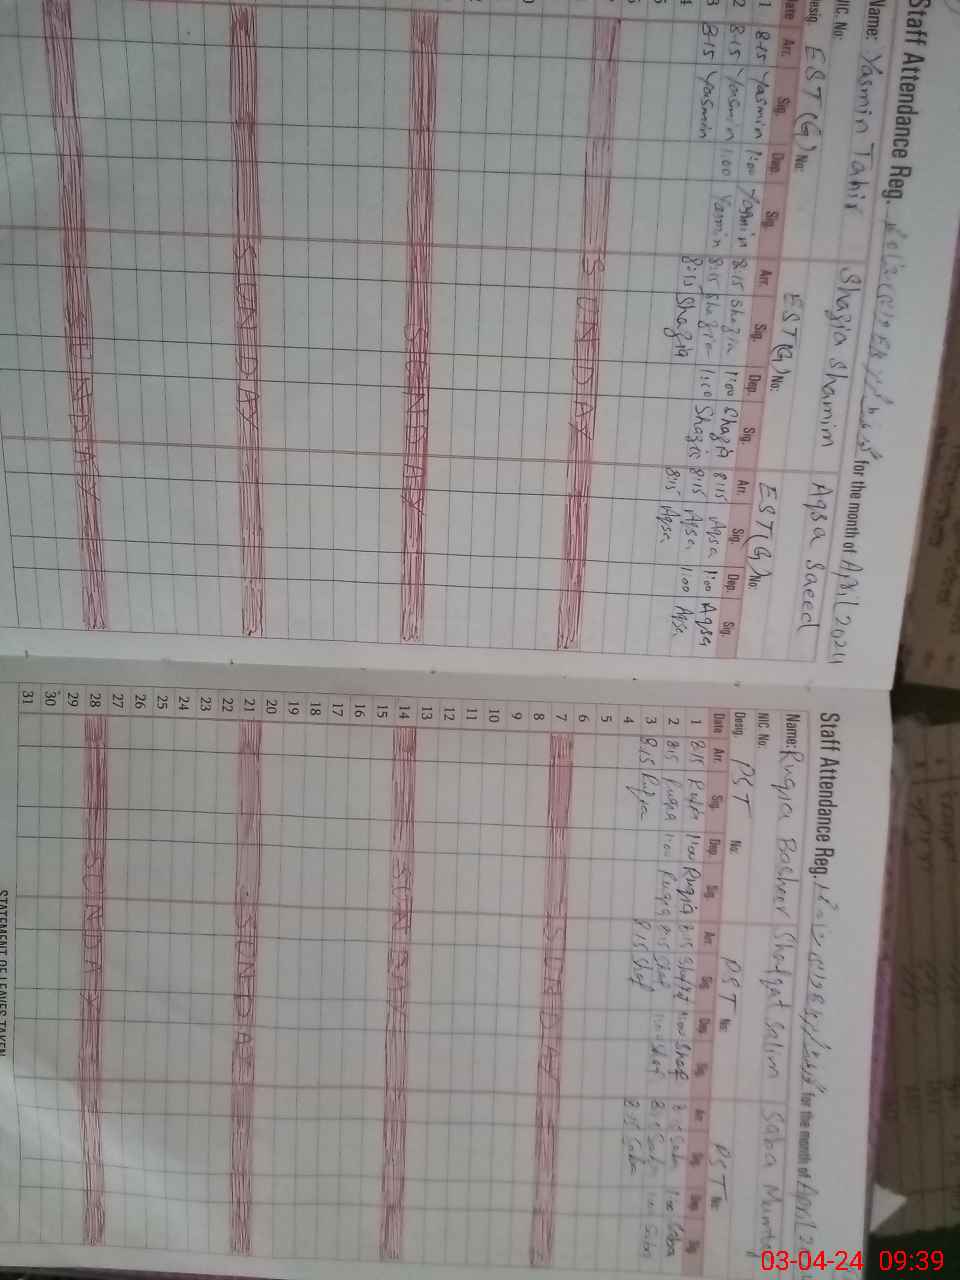 Staff Attendance Reg. for the month of April 2024
Name: Yasmin Tahir Shazia Shamim Aqsa Saeed
NIC. No:
Desig. EST (G) No: EST (G) No: EST (G) No:
Date Arr. Sig. Dep. Sig. Arr. Sig. Dep. Sig. Arr. Sig. Dep. Sig.
1 8:15 Yasmin 1:00 Yasmin 8:15 Shazia 1:00 Shazia 8:15 Aqsa 1:00 Aqsa
2 8:15 Yasmin 1:00 Yasmin 8:15 Shazia 1:00 Shazia 8:15 Aqsa 1:00 Aqsa
3 8:15 Yasmin 8:15 Shazia 8:15 Aqsa
4
5
SUNDAY
SUNDAY
SUNDAY
SUNDAY
Staff Attendance Reg. for the month of April
Name: Ruqia Basheer Shafqat Salim Saba
NIC No.
Desig. PST No: PST No: PST No:
Date Arr. Sig. Dep. Sig. Arr. Sig. Dep. Sig. Arr. Sig. Dep. Sig.
1 8:15 Ruqia 1:00 Ruqia 8:15 1:00 Shaf 8:15 Saba 1:00 Saba
2 8:15 Ruqia 1:00 Ruqia 8:15 Shaf 1:00 Shaf 8:15 Saba 1:00 Saba
3 8:15 Ruqia 8:15 Shaf 8:15 Saba
4
5
6
7 SUNDAY
8
9
10
11
12
13
14 SUNDAY
15
16
17
18
19
20
21 SUNDAY
22
23
24
25
26
27
28 SUNDAY
29
30
31
STATEMENT OF LEAVES TAKEN
03-04-24 09:39